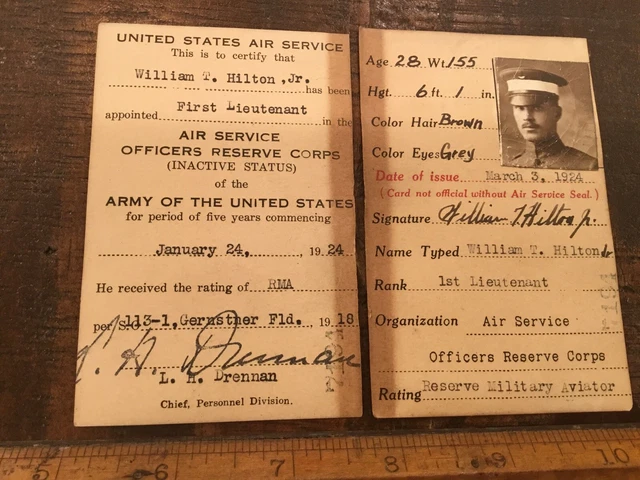 UNITED STATES AIR SERVICE
This is to certify that
William T. Hilton, Jr.
has been
appointed First Lieutenant in the
AIR SERVICE
OFFICERS RESERVE CORPS
(INACTIVE STATUS)
of the
ARMY OF THE UNITED STATES
for period of five years commencing
January 24, 1924
He received the rating of RMA
per S.O. 113-1, Gernstner Fld. 1918
L. H. Drennan
L. H. Drennan
Chief, Personnel Division.
Age 28 Wt. 155
Hgt. 6 ft. 1 in.
Color Hair Brown
Color Eyes Grey
Date of issue March 3, 1924
(Card not official without Air Service Seal.)
Signature William T Hilton Jr.
Name Typed William T. Hilton Jr
Rank 1st Lieutenant
Organization Air Service
Officers Reserve Corps
Rating Reserve Military Aviator
5 6 7 8 9 10